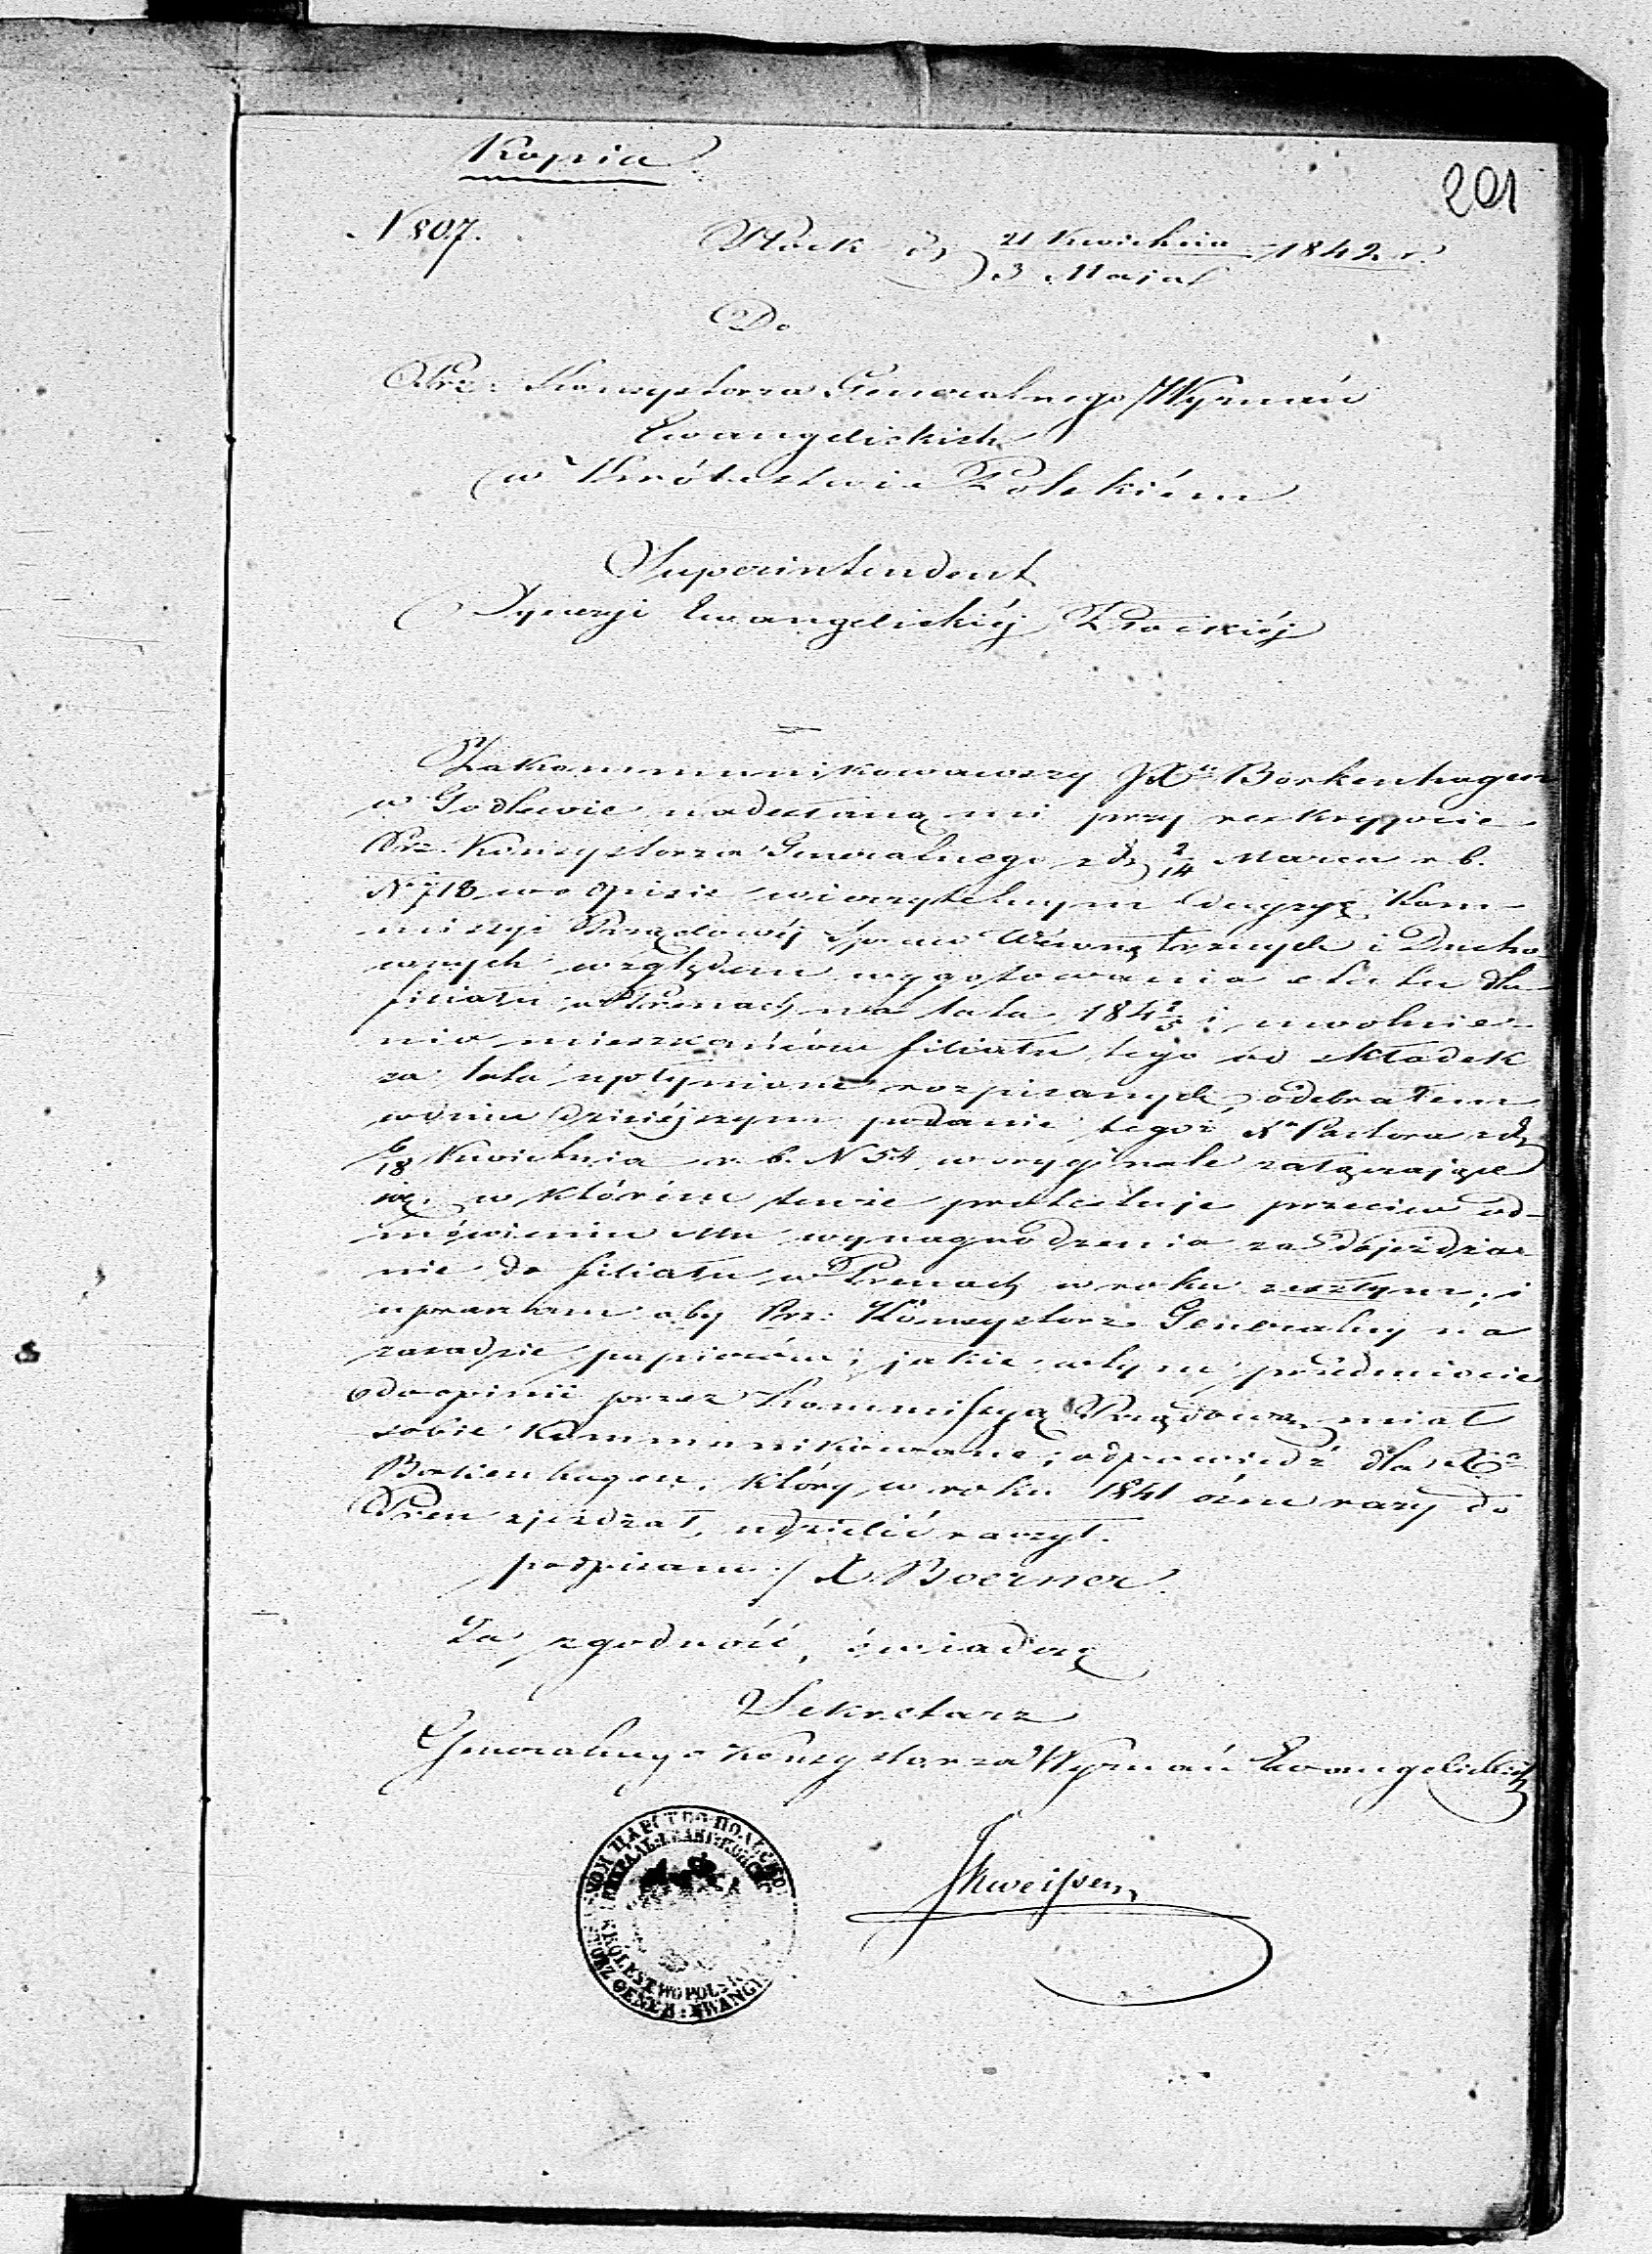 Kopia
201
N 507.
Płock d. 21 Kwietnia / 3 Maja 1842 r.
Do
Prz: Konsystorza Generalnego Wyznań
Ewangelickich
w Królestwie Polskiém
Superintendent
Dyecezji Ewangelickiéj Płockiéj
Zakommunikowawszy JXu Borkenhagen
w Godlewie nadesłaną mi przy reskrypcie
Prz. Konsystorza Generalnego z d. 2/14 Marca r. b.
N 718 w opisie wierzytelnym decyzyę Kom-
missyi Rządowéj Spraw Wewnętrznych i Ducho-
wnych względem wygotowania etatu dla
filiału w Prenach na lata 184 2/5 i uwolnie-
nia mieszkańców filiału tego od składek
za lata upłynione rozpisanych, odebrałem
w dniu dzisiéjszym podanie tegoż Xa Pastora z d.
6/18 Kwietnia r. b. N 54 w oryginale załączające
się, w którém tenże protestuje przeciw od-
mówieniu Mu wynagrodzenia za dojeżdża-
nie do filiału w Prenach w roku zeszłym; i
upraszam aby Prz: Konsystorz Generalny na
zasadzie papierów, jakie w tym przedmiocie
do opinii przez Kommissyą Rządową miał
sobie kommunikowane; odpowiedź dla Xa
Borkenhagen, który w roku 1841 ośm razy do
Pren zjeżdżał, udzielić raczył.
podpisano / X. Boerner.
Za zgodność, świadczę
Sekretarz
Generalnego Konsystorza Wyznań Ewangelickich
ЦАРСТВО ПОЛЬСКО
KRÓLESTWO POLSK